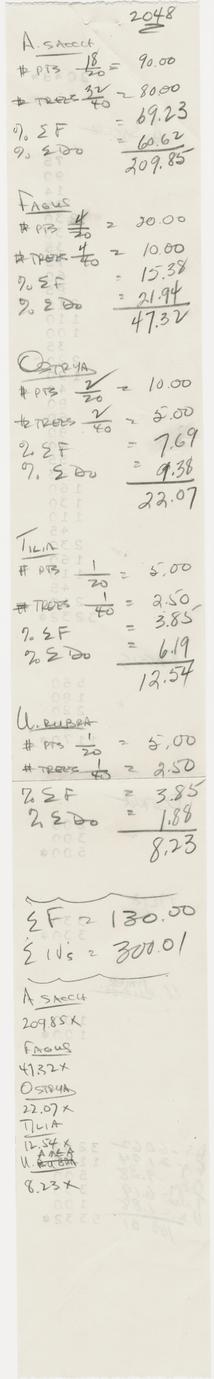 2048
A. SACCH
# PTS 18/20 = 90.00
# TREES 32/40 = 80.00
% ΣF = 69.23
% ΣDo = 60.62
209.85
FAGUS
# PTS 4/20 = 20.00
# TREES 4/40 = 10.00
% ΣF = 15.38
% ΣDo = 21.94
47.32
OSTRYA
# PTS 2/20 = 10.00
# TREES 2/40 = 5.00
% ΣF = 7.69
% ΣDo = 9.38
22.07
TILIA
# PTS 1/20 = 5.00
# TREES 1/40 = 2.50
% ΣF = 3.85
% ΣDo = 6.19
12.54
U. RUBRA
# PTS 1/20 = 5.00
# TREES 1/40 = 2.50
% ΣF = 3.85
% ΣDo = 1.88
8.23
ΣF = 130.00
ΣIV's = 300.01
A SACCH
209.85X
FAGUS
47.32X
OSTRYA
22.07X
TILIA
12.54X
U. RUBRA
8.23X